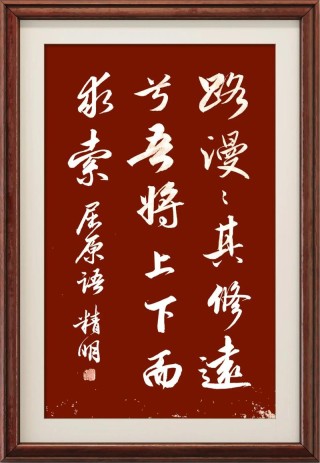 路漫〻其修遠
兮吾将上下而
求索 屈原语 精明